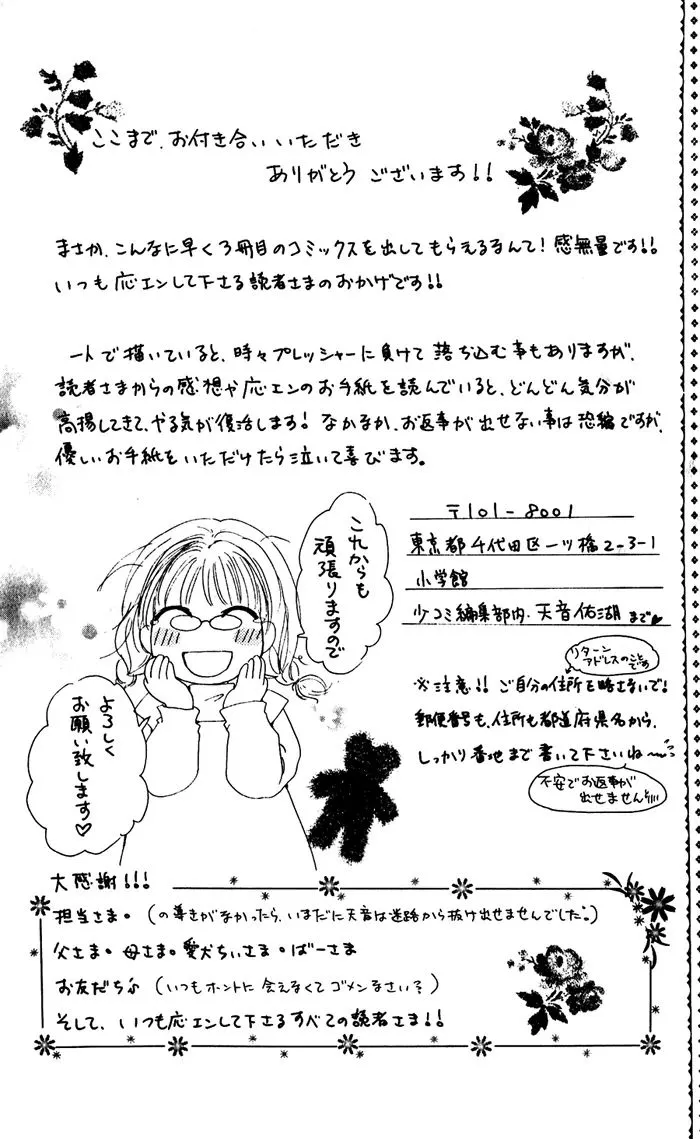 ここまで、お付き合いいただき
ありがとうございます!!
まさか、こんなに早く3冊目のコミックスを出してもらえるなんて!感無量です!!
いつも応エンして下さる読者さまのおかげです!!
一人で描いていると、時々プレッシャーに負けて落ち込む事もありますが、
読者さまからの感想や応エンのお手紙を読んでいると、どんどん気分が
高揚してきて、やる気が復活します!なかなか、お返事が出せない事は恐縮ですが、
優しいお手紙をいただけたら泣いて喜びます。
これからも
頑張りますので
よろしく
お願い致します♡
〒101-8001
東京都千代田区一ツ橋2-3-1
小学館
少コミ編集部内・天音佑湖まで
リターン
アドレスのこと
です
※注意!!ご自分の住所を略さないで!
郵便番号も、住所も都道府県名から、
しっかり番地まで書いて下さいね〜
不安でお返事が
出せません
大感謝!!!
担当さま。(の導きがなかったら、いまだに天音は迷路から抜け出せませんでした。)
父さま。母さま。愛犬ちぃさま。ばーさま
お友だち♪(いつもホントに会えなくてゴメンなさい)
そして、いつも応エンして下さるすべての読者さま!!